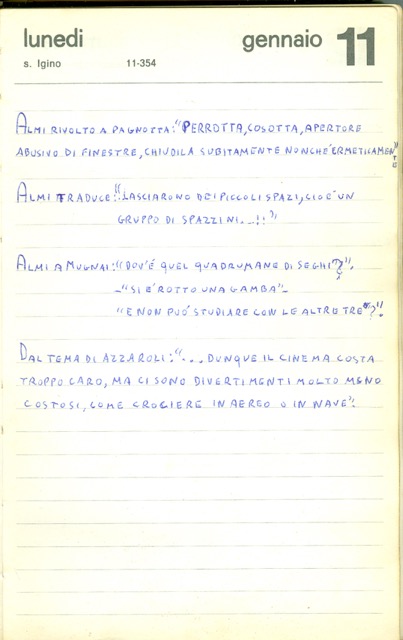 lunedì gennaio 11
s. Igino 11-354
ALMI RIVOLTO A PAGNOTTA: "PERROTTA, COSOTTA, APERTORE
ABUSIVO DI FINESTRE, CHIUDILA SUBITAMENTE NONCHÉ ERMETICAMENTE"
ALMI TRADUCE: "LASCIARONO DEI PICCOLI SPAZI, CIOÈ UN
GRUPPO DI SPAZZINI...!!"
ALMI A MUGNAI: "DOV'È QUEL QUADRUMANE DI SEGHI?".
–"SI È ROTTO UNA GAMBA"–
"E NON PUÒ STUDIARE CON LE ALTRE TRE"?".
DAL TEMA DI AZZAROLI: "... DUNQUE IL CINEMA COSTA
TROPPO CARO, MA CI SONO DIVERTIMENTI MOLTO MENO
COSTOSI, COME CROCIERE IN AEREO O IN NAVE".